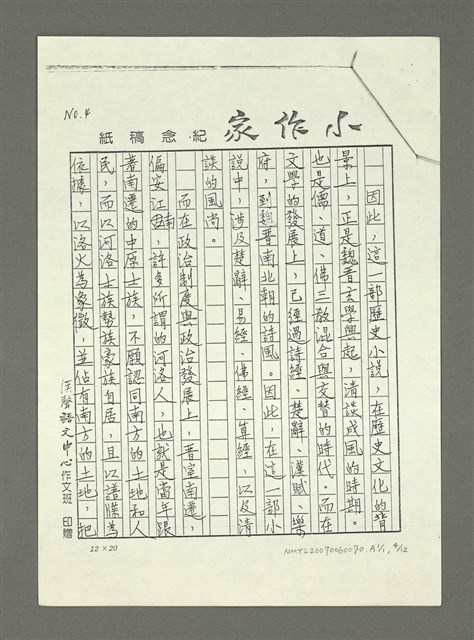 No.4
小作家 紀念稿紙
因此,這一部歷史小說,在歷史文化的背
景上,正是魏晉玄學興起,清談成風的時期。
也是儒、道、佛三教混合與交替的時代。而在
文學的發展上,已經過詩經、楚辭、漢賦、樂
府,到魏晉南北朝的詩風。因此,在這一部小
說中,涉及楚辭、易經、佛經、算經,以及清
談的風尚。
而在政治制度與政治發展上,晉室南遷,
偏安江南,許多所謂的河洛人,也就是當年跟
著南遷的中原士族,不願認同南方的土地和人
民,而以河洛士族勢族豪族自居,且以譜牒為
依據,以洛火為象徵,並佔有南方的土地,把
漢聲語文中心 作文班 印贈
12×20
NMTL20070060070.A1/1, 4/12